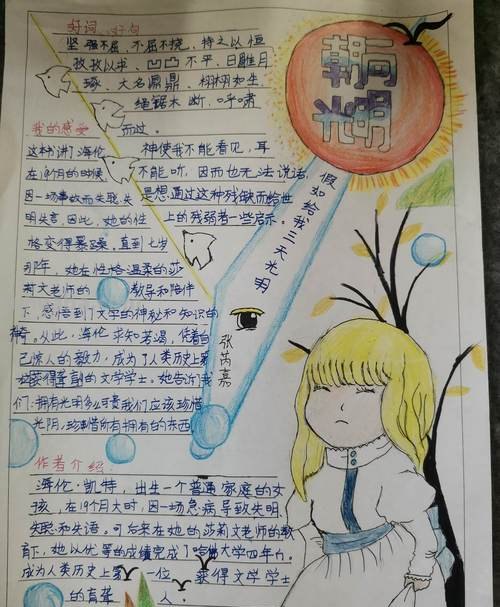 好词、好句
坚强不屈、不屈不挠、持之以恒
孜孜以求、凹凸不平、日月胜
琢、大名鼎鼎、栩栩如生
绳锯木断、呼啸
而过。
朝向
光明
假如给我三天光明
张芮嘉
我的感受
这本书讲了海伦 神使我不能看见，耳
在19个月的时候 不能听，因而也无法说话
因一场事故而失聪、失 是想通过这种残缺而给世
明失言，因此，她的性 上的残弱者一些启示。
格变得暴躁，直到七岁
那年，她在性格温柔的莎
莉文老师的 教导和陪伴
下，感悟到了文学的神秘和知识的
神奇。从此，海伦求知若渴，凭着自
己惊人的毅力，成为了人类历史上第
一位获得聋盲的文学学士。她告诉了我
们：拥有光明多么可贵我们应该珍惜
光阴，珍惜所有拥有的东西
作者介绍
海伦·凯特，出生一个普通家庭的女
孩，在19个月大时，因一场急病导致失明、
失聪和失语。可后来在她的莎莉文老师的教
育下，她以优等的成绩完成了哈佛大学四年
成为人类历史上第一位 获得文学学士
的盲聋 人。